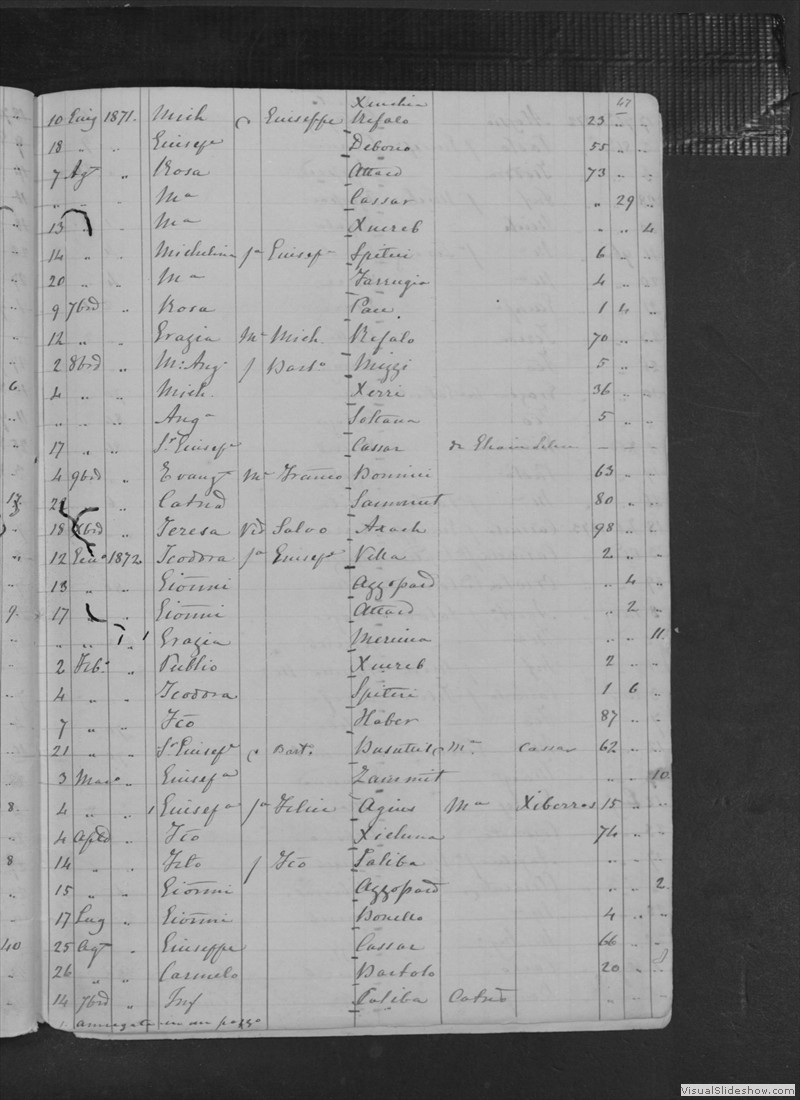 47
10 Giug 1871. Mich c Giuseppe Refalo 23 " "
18 " " Giusepe Debono 55 " "
7 Agt " Rosa Attard 73 " "
" " " Ma Cassar " 29 "
13 " " Ma Xuereb " " 4
14 " " Michelina fa Giusepe Spiteri 6 " "
20 " " Ma Farrugia 4 " "
9 7bre " Rosa Pace 1 4 "
12 " " Grazia Me Mich. Refalo 70 " "
2 8bre " M: Ang f Barto Mizzi 5 " "
4 " " Mich. Xerri 36 " "
" " " Anga Soltana 5 " "
17 " " Sr Giusepa Cassar de
4 9bre " Evangt Me Franco Bonnici 63 " "
" " Catna Sammut 80 " "
18 Xbre " Teresa Vid Salvo Axach 98 " "
12 Gena 1872 Teodora fa Giusepe Villa 2 " "
13 " " Gionni Azzopard " 4 "
17 " " Gionni Attard " 2 "
" " " Grazia " " 11.
2 Feb. " Publio Xuereb 2 " "
4 " " Teodora Spiteri 1 6 "
7 " " Fco Haber 87 " "
21 " " Sr Giusepe c Barto Me Cassar 62 " "
3 Mar " Giusepa Zammit " " 10
4 " " 1 Giusepa fa Felice Agius Ma Xiberras 15 " "
4 Aple " Fco Xicluna 74 " "
14 " " f Fco Saliba " " "
15 " " Gionni Azzopard " " 2.
17 Lug " Gionni Bonello 4 " "
25 Agt " Giuseppe Cassar 66 " "
26 " " Carmelo Bartolo 20 " "
14 7bre " Inf Saliba Catna " " "
1 annegata in un pozzo
VisualSlideshow.com